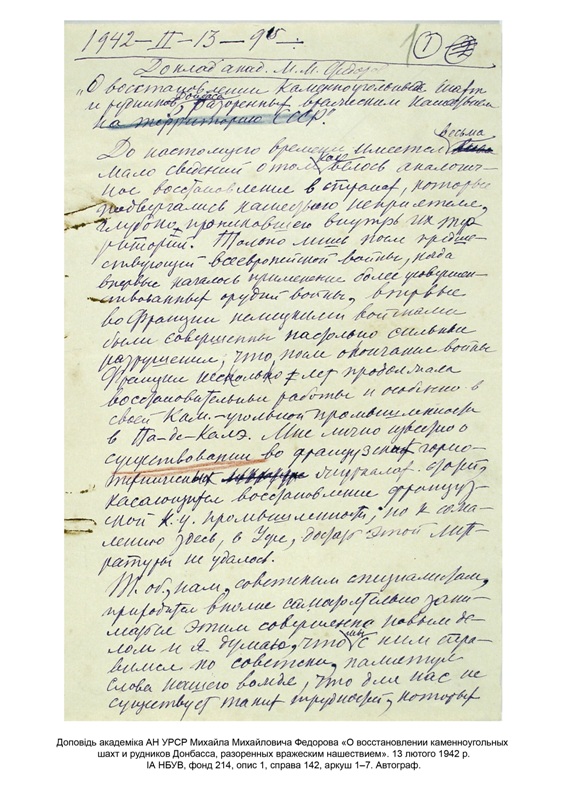 1942–II–13–9
1
2
Доклад акад. М.М. Федорова
„О восстановлении каменноугольных шахт
и рудников Донбасса, разоренных вражеским нашествием
на территорию СССР."
До настоящего времени имеется весьма
мало сведений о том, как велось аналогич-
ное восстановление в странах, которые
подвергались нашествию неприятеля,
глубоко проникавшего внутрь их тер
риторий. Только лишь после предше-
ствующей всеевропейской войны, когда
впервые началось применение более усовершен-
ствованных орудий войны, впервые
во Франции немецкими войсками
были совершены настолько сильные
разрушения, что, после окончания войны
Франция несколько лет проделывала
восстановительные работы и особенно в
своей Кам.-угольной промышленности
в Па-де-Калэ. Мне лично известно о
существовании во французских горно-
технических журналах статей,
касающихся восстановления француз-
ской к.у. промышленности, но к сожа-
лению здесь, в Уфе, достать этой лите-
ратуры не удалось.
Т. об., нам, советским специалистам,
приходится вполне самостоятельно зани-
маться этим совершенно новым де-
лом и я думаю, что мы с ним спра-
вимся по советски, памятуя
слова нашего вождя, что для нас не
существует таких трудностей, которых
Доповідь академіка АН УРСР Михайла Михайловича Федорова «О восстановлении каменноугольных
шахт и рудников Донбасса, разоренных вражеским нашествием». 13 лютого 1942 р.
ІА НБУВ, фонд 214, опис 1, справа 142, аркуш 1–7. Автограф.